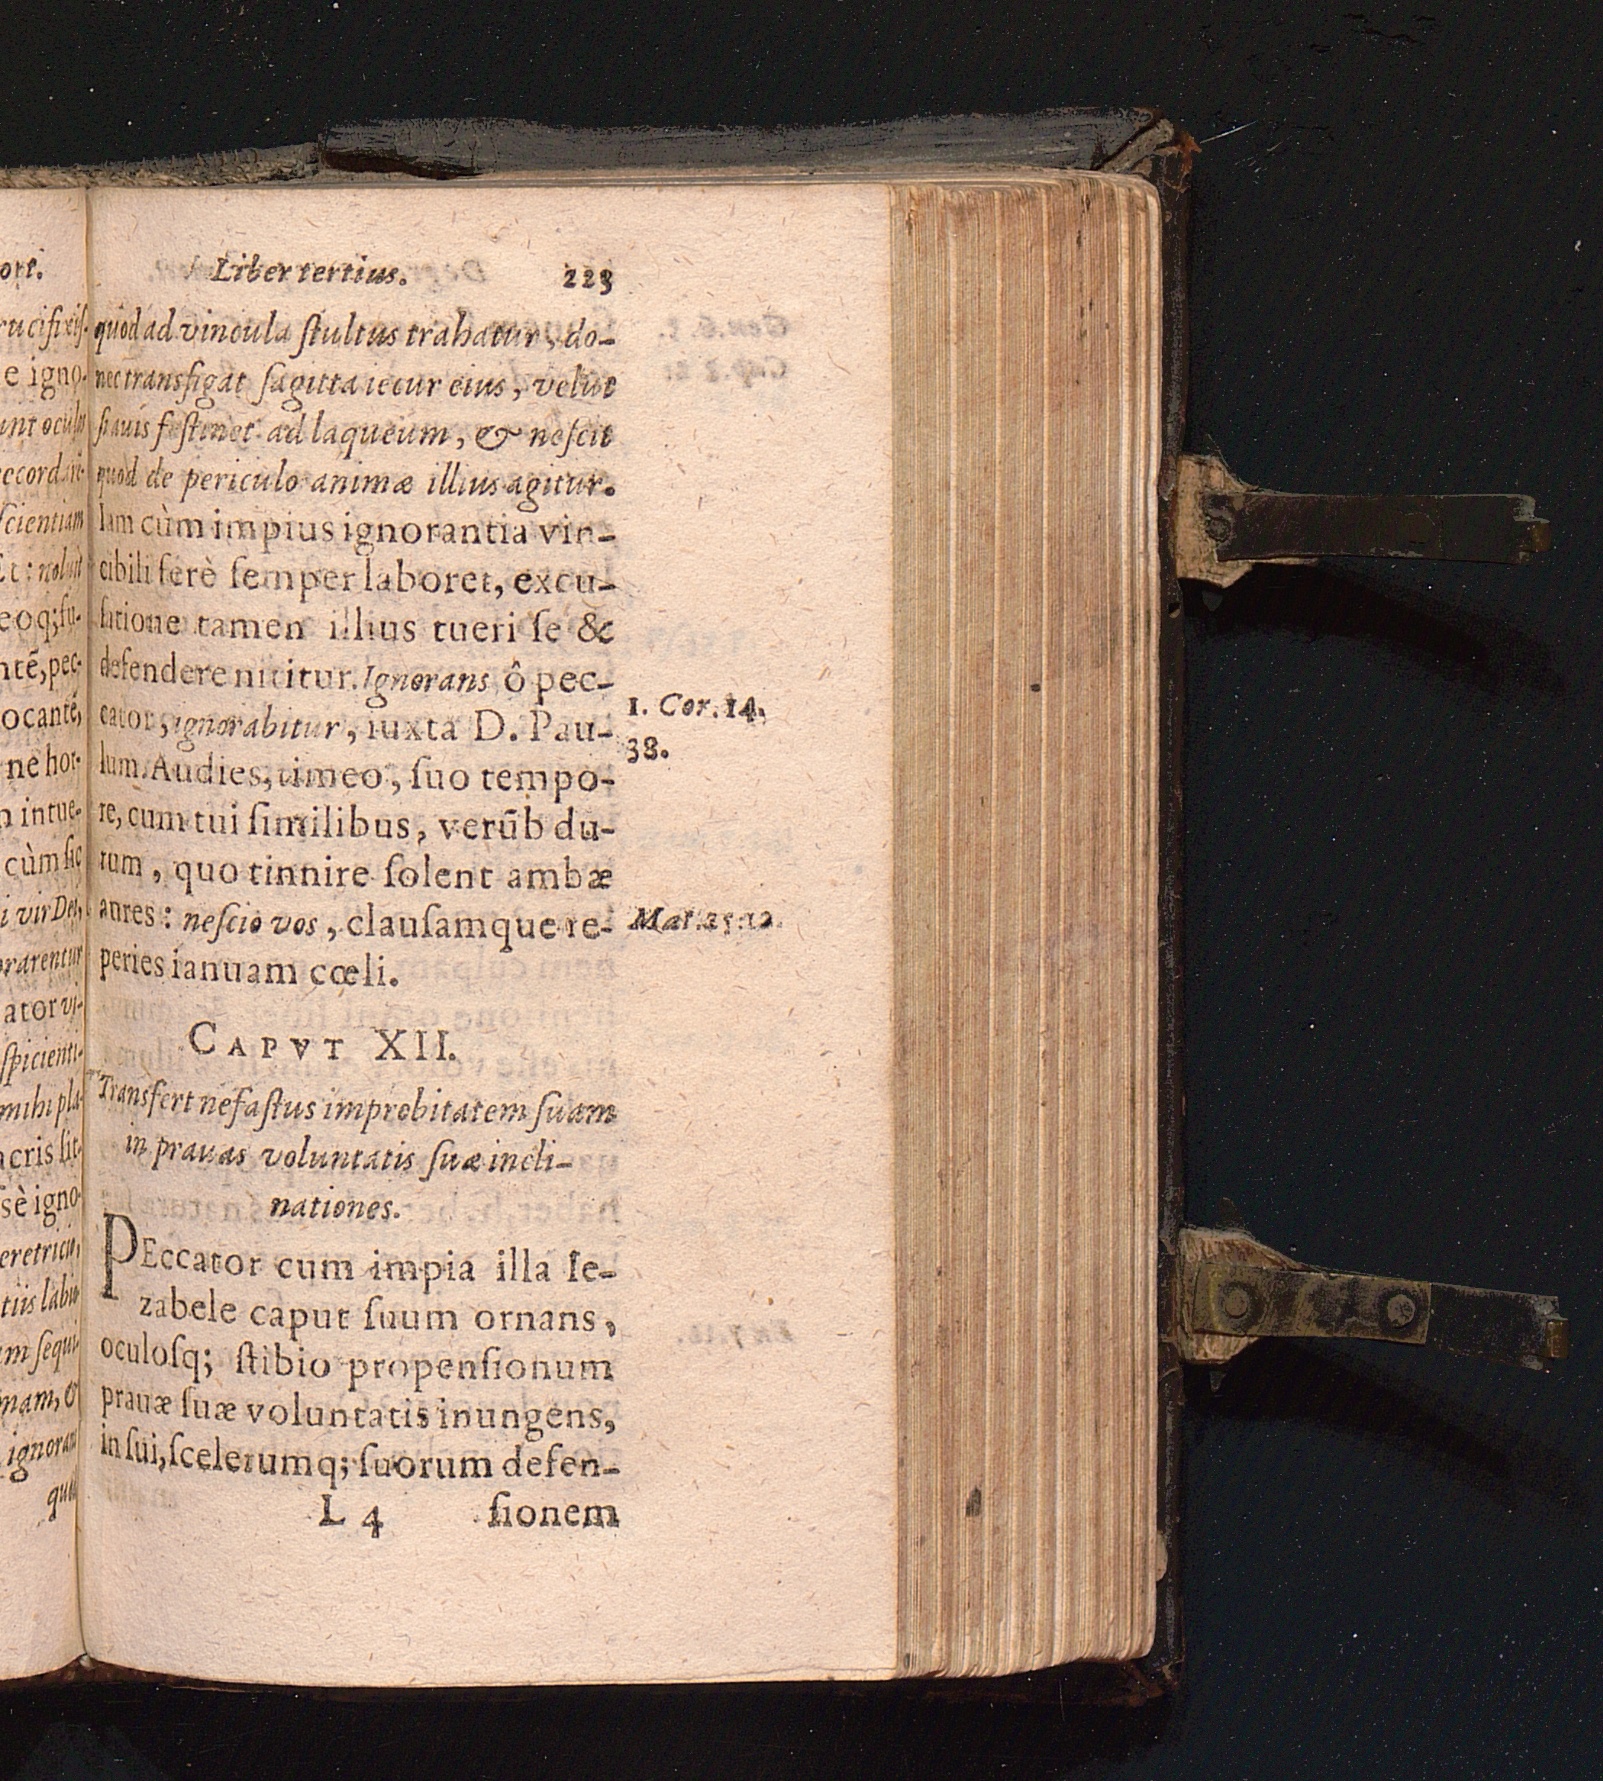 ort.
rucifixis
e igno-
unt oculos
scientiam
it: nolunt
eoq; su-
ntē, pec-
ocantē,
ne hor-
n intue-
cùm sic
i vir Dei,
orarentur
ator vi-
spicienti-
mihi pla-
acris lit-
sè igno-
eretricis,
tiis labio
m sequi-
mam, &
ignorans
quod
Liber tertius. 223
quòd ad vincula ſtultus trahatur, do-
nec transfigat ſagitta iecur eius, velut
ſi auis feſtinet ad laqueum, & neſcit
quod de periculo animæ illius agitur.
Iam cùm impius ignorantia vin-
cibili ferè ſemper laboret, excu-
ſatione tamen illius tueri ſe &
defendere nititur. Ignorans ô pec-
cator, ignorabitur, iuxta D. Pau-
lum. Audies, timeo, ſuo tempo-
re, cum tui ſimilibus, verūb du-
rum, quo tinnire ſolent ambæ
aures: neſcio vos, clauſamque re-
peries ianuam cœli.
1. Cor. 14.
38.
Mat. 25. 12.
CAPVT XII.
Transfert nefaſtus improbitatem ſuam
in prauas voluntatis ſuæ incli-
nationes.
PEccator cum impia illa Ie-
zabele caput ſuum ornans,
oculoſq; ſtibio propenſionum
prauæ ſuæ voluntatis inungens,
in ſui, ſcelerumq; ſuorum defen-
L 4 ſionem